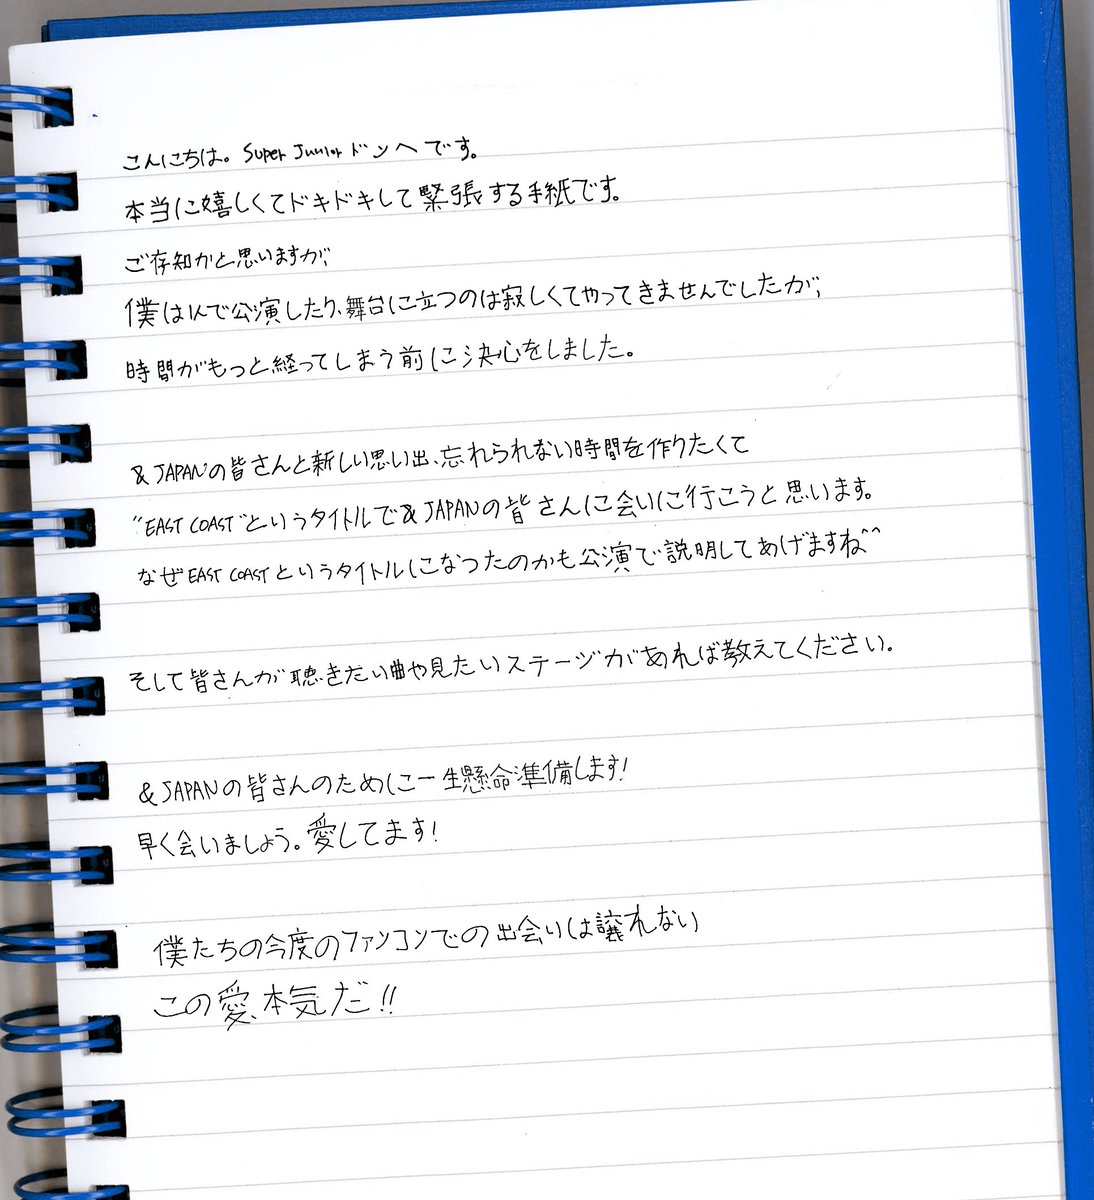 こんにちは。Super Junior ドンヘです。
本当に嬉しくてドキドキして緊張する手紙です。
ご存知かと思いますが、
僕は1人で公演したり、舞台に立つのは寂しくてやってきませんでしたが、
時間がもっと経ってしまう前に決心をしました。
& JAPANの皆さんと新しい思い出、忘れられない時間を作りたくて
"EAST COAST"というタイトルで& JAPANの皆さんに会いに行こうと思います。
なぜEAST COASTというタイトルになったのかも公演で説明してあげますね^^
そして皆さんが聴きたい曲や見たいステージがあれば教えてください。
& JAPANの皆さんのために一生懸命準備します!
早く会いましょう。愛してます!
僕たちの今度のファンコンでの出会いは譲れない
この愛、本気だ!!